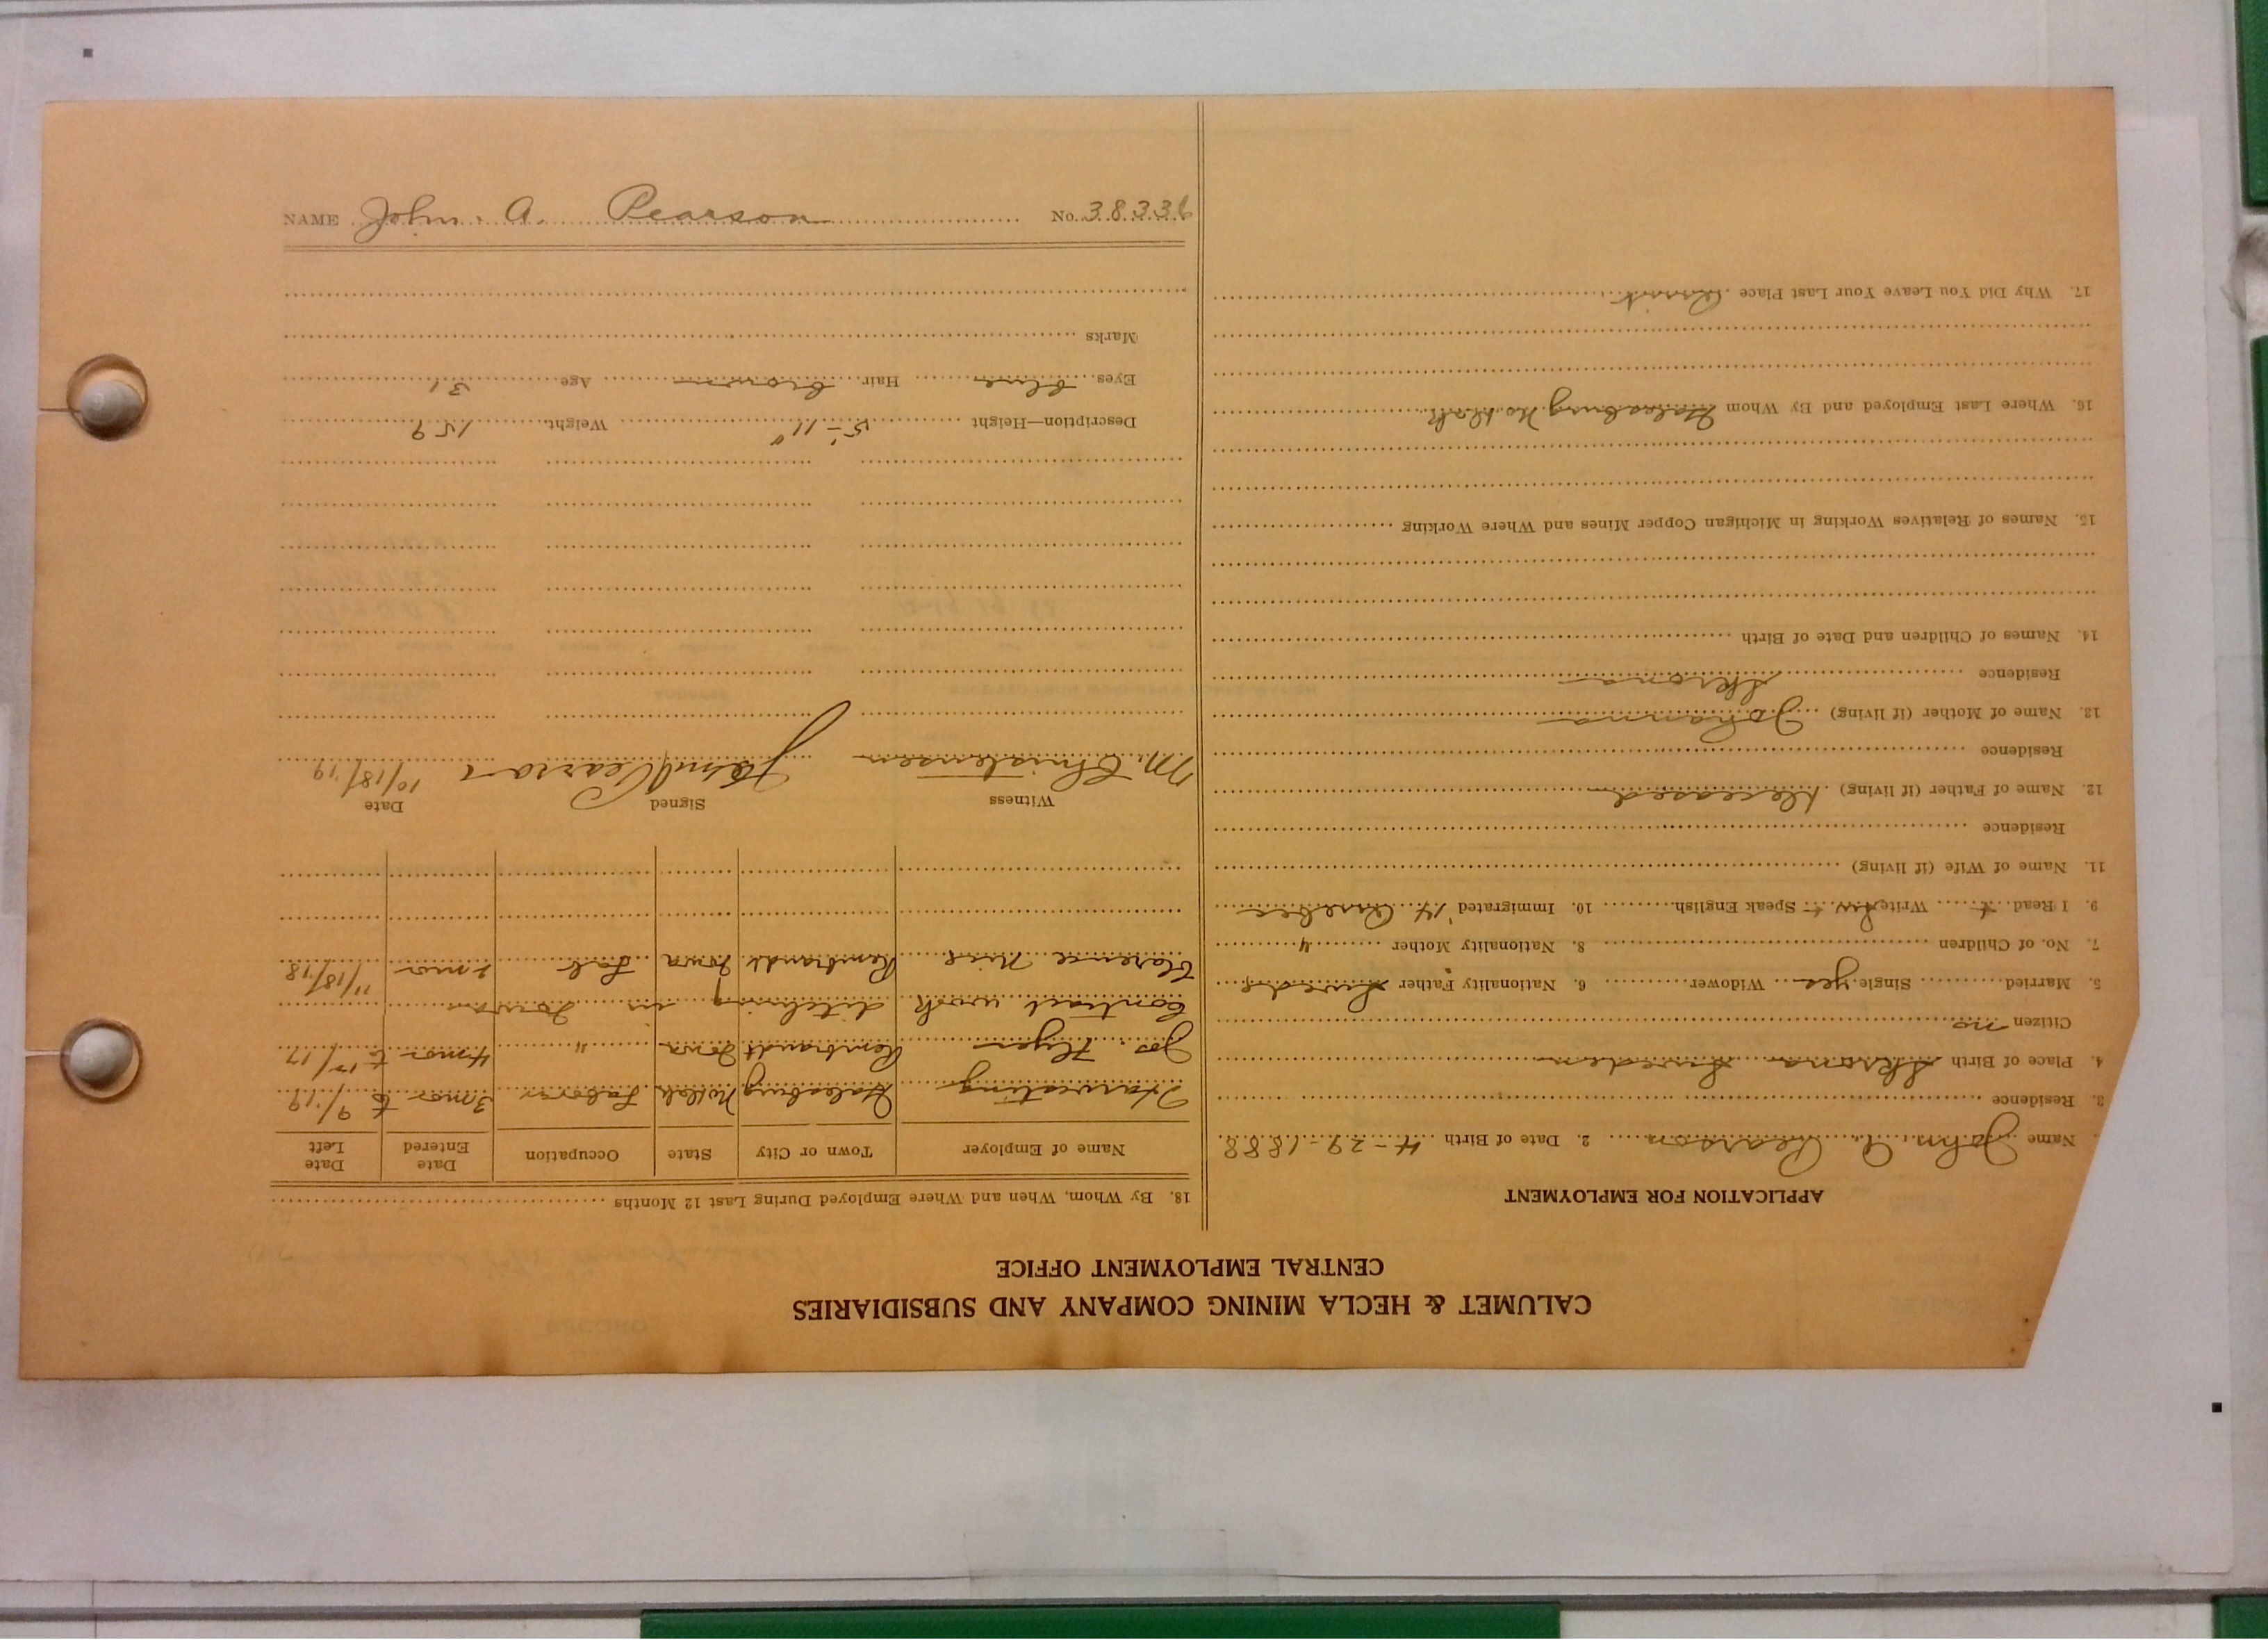 CALUMET & HECLA MINING COMPANY AND SUBSIDIARIES
CENTRAL EMPLOYMENT OFFICE
APPLICATION FOR EMPLOYMENT
Name John A. Pearson 2. Date of Birth 4-29-1888
3. Residence
4. Place of Birth Skrona Sweden
Citizen no
5. Married Single yes Widower 6. Nationality Father Swede
7. No. of Children 8. Nationality Mother "
9. I Read Write Speak English 10. Immigrated '14 Quebec
11. Name of Wife (if living)
Residence
12. Name of Father (if living) Deceased
Residence
13. Name of Mother (if living) Johanna
Residence Skrona
14. Names of Children and Date of Birth
15. Names of Relatives Working in Michigan Copper Mines and Where Working
16. Where Last Employed and By Whom Halesburg No. Dak
17. Why Did You Leave Your Last Place Quit
18. By Whom, When and Where Employed During Last 12 Months
Name of Employer Town or City State Occupation Date Entered Date Left
Harvesting Halesburg No Dak Laborer 3 mos to 9/19
Jos. Rembrandt Iowa " 4 mos to /17
Contract work ditching in Iowa
Clarence Rembrandt Iowa Lab 2 mos 11/18/18
Witness Signed Date
M. Christensen John Pearson 10/18/19
Description—Height 5'-11" Weight 159
Eyes blue Hair brown Age 31
Marks
NAME John A. Pearson No. 38336